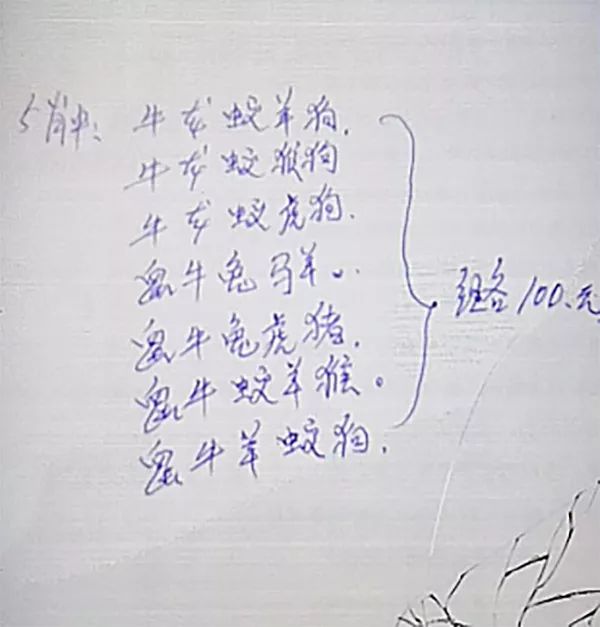 5肖中: 牛龙蛟羊狗.
牛龙蛟猴狗
牛龙蛟虎狗.
鼠牛兔马羊..
鼠牛兔虎猪.
鼠牛蛟羊猴。
鼠牛羊蛟狗.
组各100.元